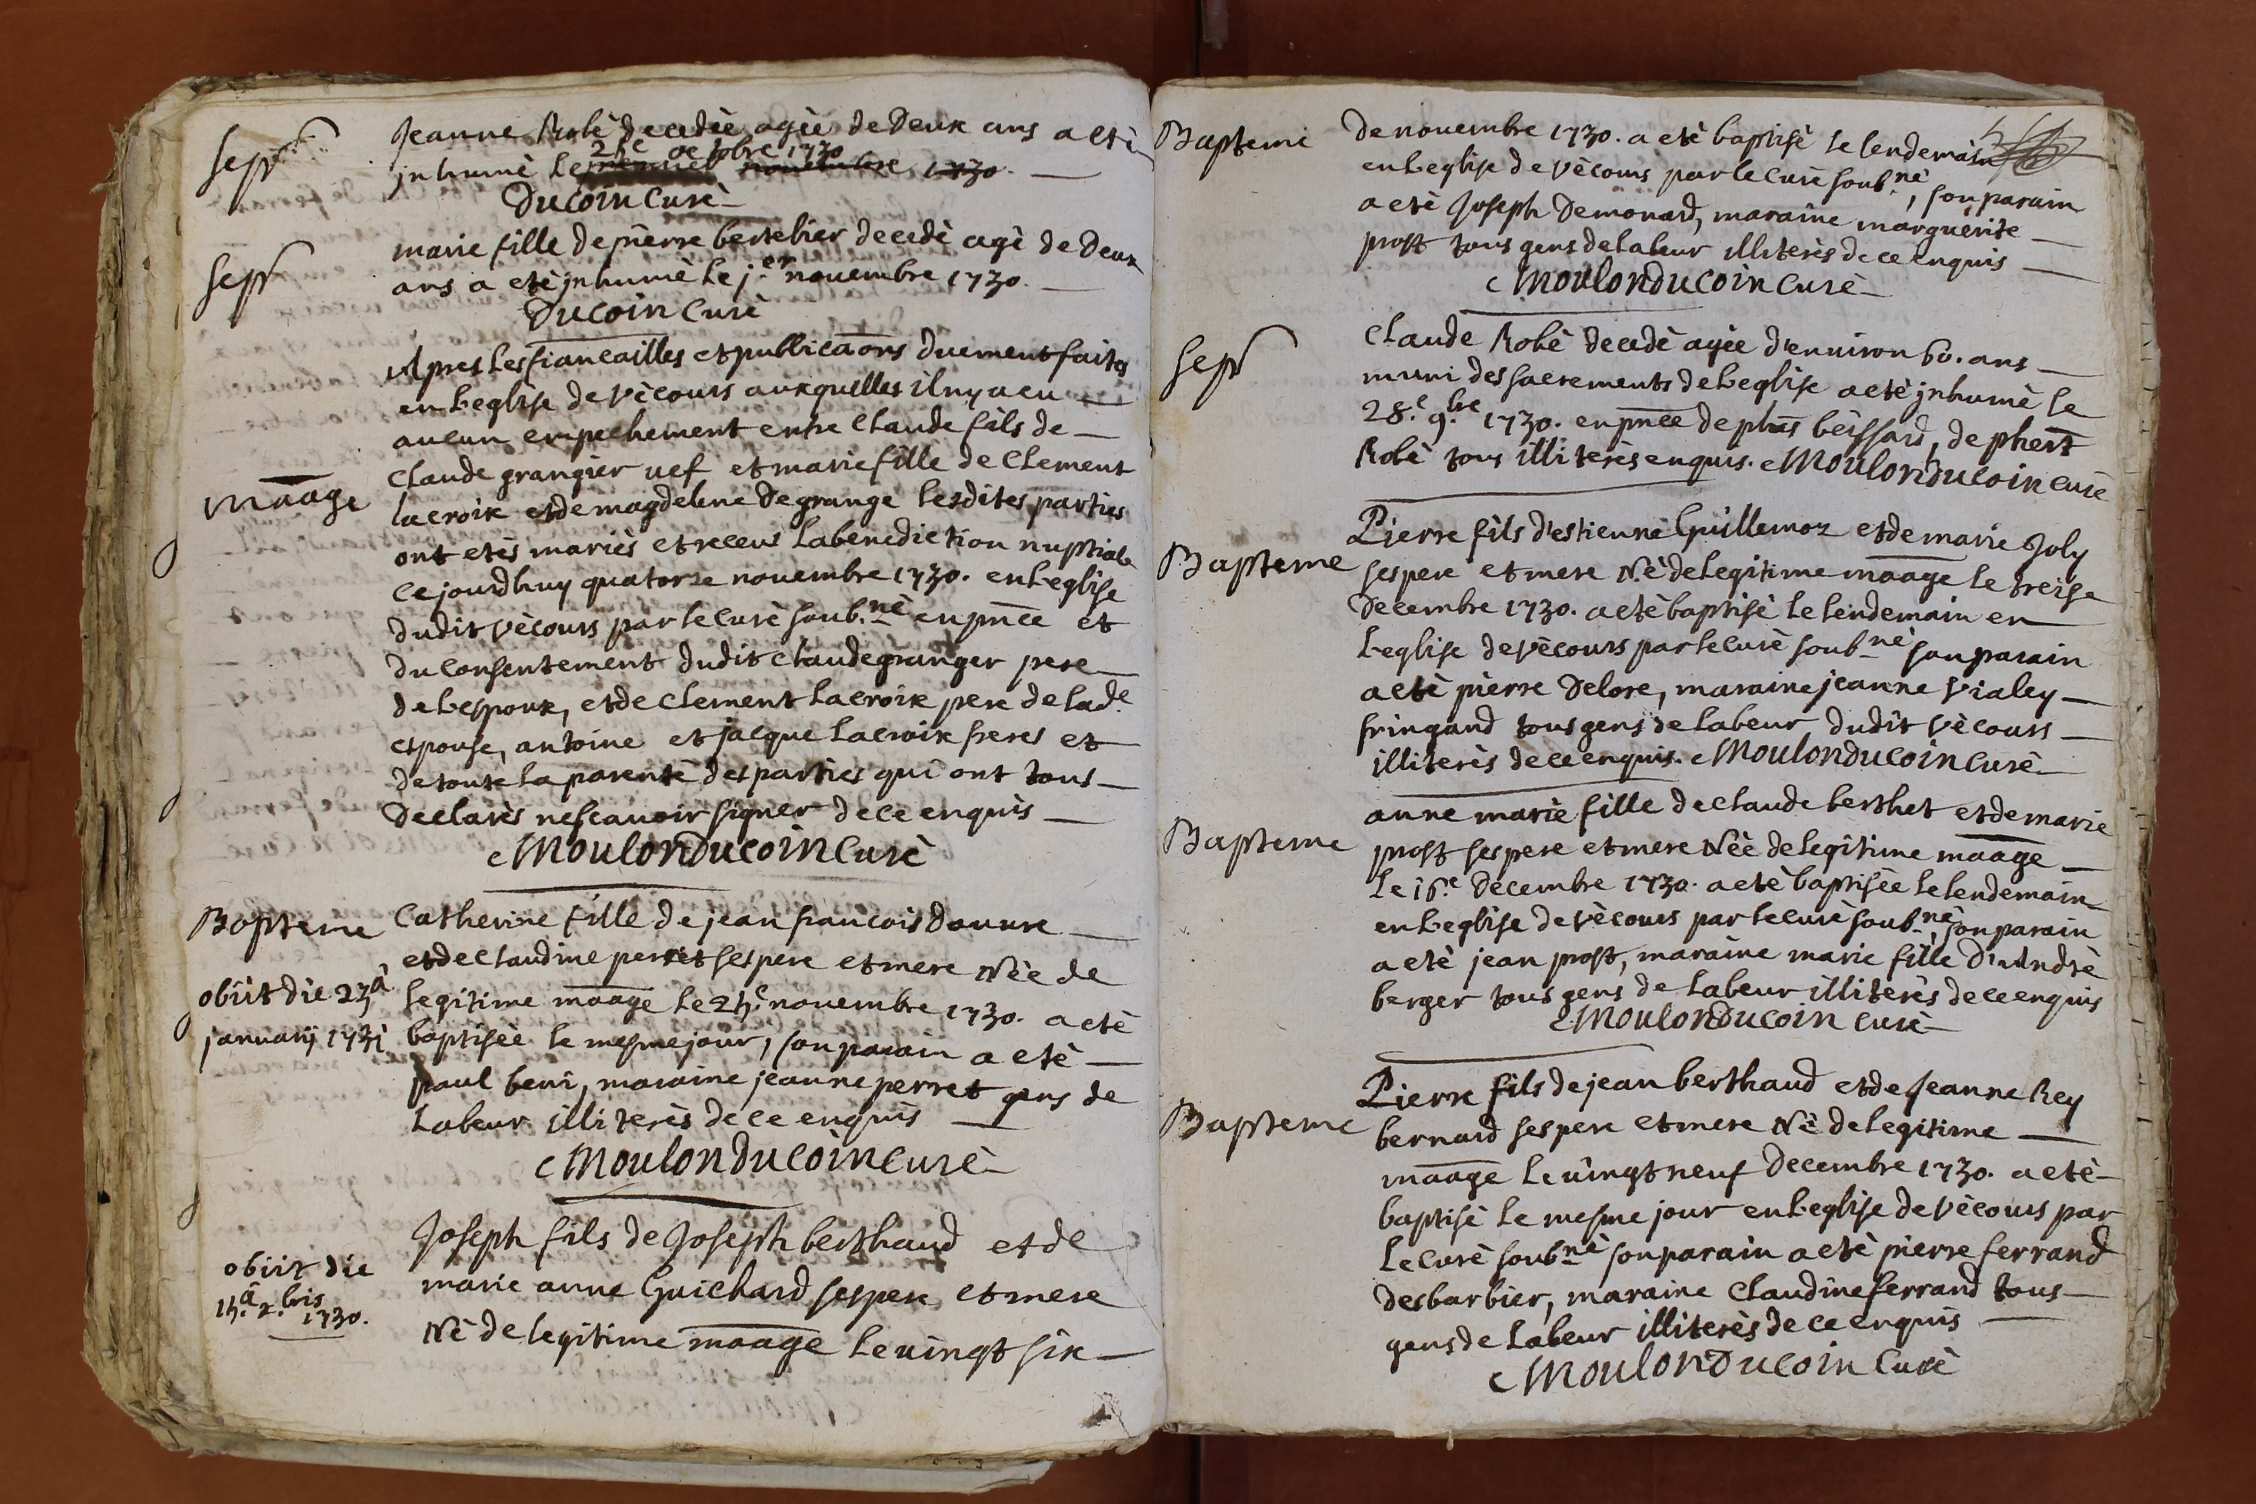 sepr
Jeanne Robè decedèe agèe de Deux ans a etè
jnhumè le premier novembre 1730.
octobre 1730
Ducoin Curè
sepr
marie fille de pierre bertelier decedè agè de Deux
ans a etè jnhumè le j.er novembre 1730.
Ducoin Curè
Apres les fiancailles et publicaons duement faites
en L'eglise de vècours auxquelles il ny a eu
aucun empechement entre Claude fils de
maage
Claude grangier vef et marie fille de Clement
lacroix et de magdelene Degrange lesdites parties
ont etès mariès et receus La benediction nuptiale
Cejourdhuy quatorze novembre 1730. en L'eglise
dudit vècours par le curè soub.nè en pnce et
du consentement dudit Claude granger pere
de L'espoux, et de Clement Lacroix pere de lad.e
espouse, antoine et jacque Lacroix freres et
de toute La parentè des parties qui ont tous
Declarès ne scavoir signer de ce enquis
Moulon Ducoin Curè
Bapteme
Catherine fille de jean francois Douvre
et de Claudine perret ses pere et mere Nèe de
obiit die 23â
januarij 1731
legitime maage le 24.e novembre 1730. a etè
baptisèe le mesme jour, son parain a etè
paul beni, maraine jeanne perret gens de
Labeur illiterès de ce enquis
Moulon Ducoin Curè
Joseph fils de Joseph berthaud et de
obiit die
14.â x.bris
1730.
marie anne Guichard ses pere et mere
Nè de legitime maage Le vingt six
Bapteme
De novembre 1730. a etè baptisè le lendemain
en L'eglise de vècours par le curè soub.nè, son parain
a etè Joseph Demonard, maraine marguerite
prost tous gens de labeur illiterès de ce enquis
Moulon Ducoin Curè
sepr
Claude Robè decedè agèe d'environ 60. ans
muni des sacrements de L'eglise a etè jnhumè le
28.e 9.bre 1730. en pnce de phes beissard, de phert
Robè tous illiterès enquis. Moulon Ducoin curè
Bapteme
Pierre fils d'estienne Guillemoz et de marie Joly
ses pere et mere Nè de Legitime maage le treise
Decembre 1730. a etè baptisè le lendemain en
L'eglise de vècours par le curè soub.nè son parain
a etè pierre Delore, maraine jeanne vialey
fringand tous gens de labeur dudit vècours
illiterès de ce enquis. Moulon Ducoin Curè
Bapteme
anne marie fille de Claude berthet et de marie
prost ses pere et mere Nèe de legitime maage
Le 16.e Decembre 1730. a etè baptisèe le lendemain
en L'eglise de vècours par le curè soub.nè, son parain
a etè jean prost, maraine marie fille D'Andrè
berger tous gens de labeur illiterès de ce enquis
Moulon Ducoin Curè
Bapteme
Pierre fils de jean berthaud et de Jeanne Rey
bernard ses pere et mere Nè de legitime
maage Le vingt neuf Decembre 1730. a etè
baptisè le mesme jour en L'eglise de vècours par
Le curè soub.nè son parain a etè pierre ferrand
desbarbier, maraine Claudine ferrand tous
gens de Labeur illiterès de ce enquis
Moulon Ducoin Curè